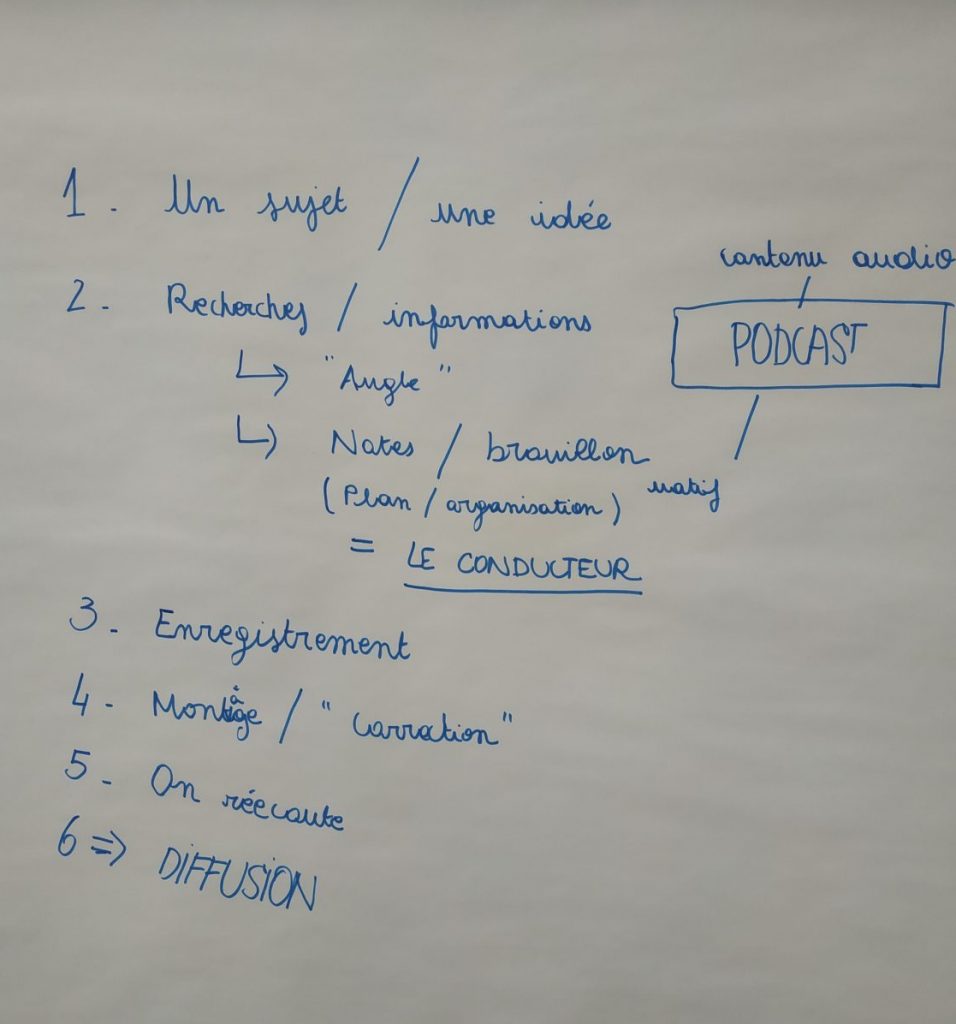 1. Un sujet / une idée
2. Recherches / informations
↳ "Angle"
↳ Notes / brouillon
(Plan / organisation)
= LE CONDUCTEUR
contenu audio
PODCAST
natif
3. Enregistrement
4. Montage / "Correction"
5. On réécoute
6 => DIFFUSION